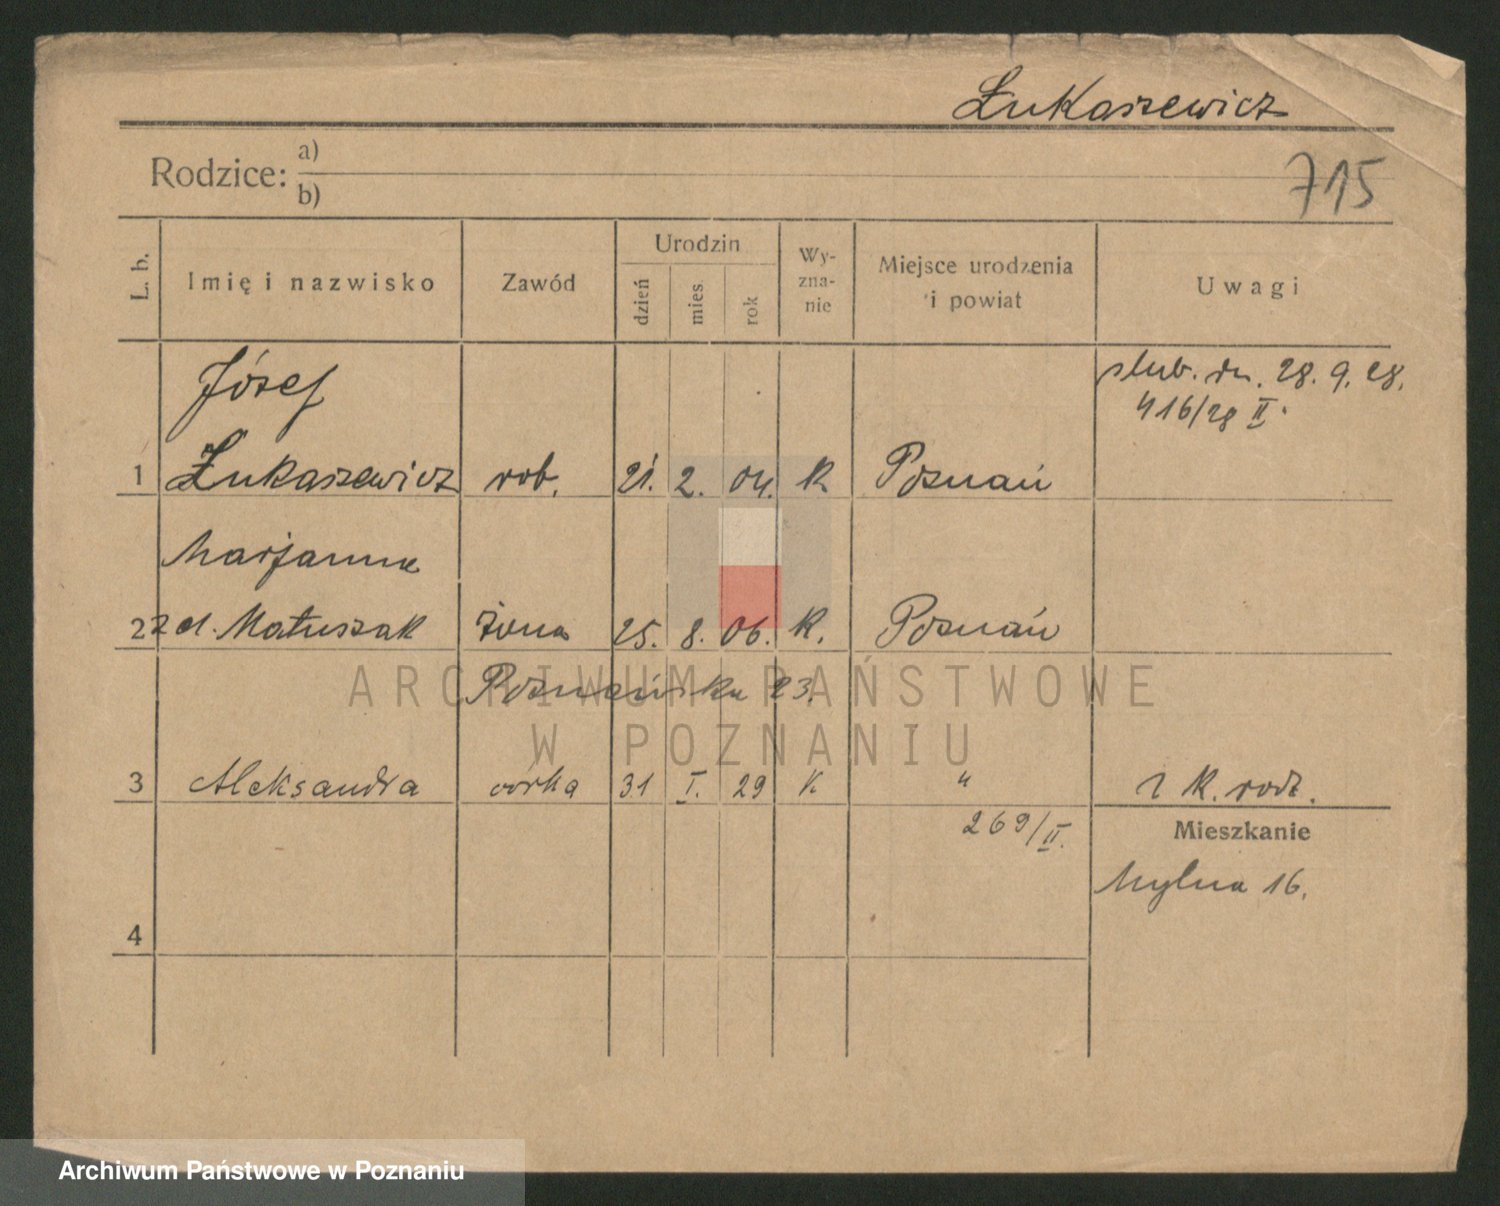 Łukaszewicz
Rodzice: a)
b)
715
L. b.
Imię i nazwisko
Zawód
Urodzin
dzień
mies.
rok
Wy-
zna-
nie
Miejsce urodzenia
i powiat
Uwagi
Józef
ślub. dn. 28. 9. 28.
416/28 II.
1 Łukaszewicz rob. 21. 2. 04. K Poznań
Marjanna
2 z d. Matuszak żona 25. 8. 06. K. Poznań
Poznańska 23.
3 Aleksandra córka 31 I. 29 K. " 1 K. rodz.
269/II.
Mieszkanie
Mylna 16.
4
ARCHIWUM PAŃSTWOWE
W POZNANIU
Archiwum Państwowe w Poznaniu